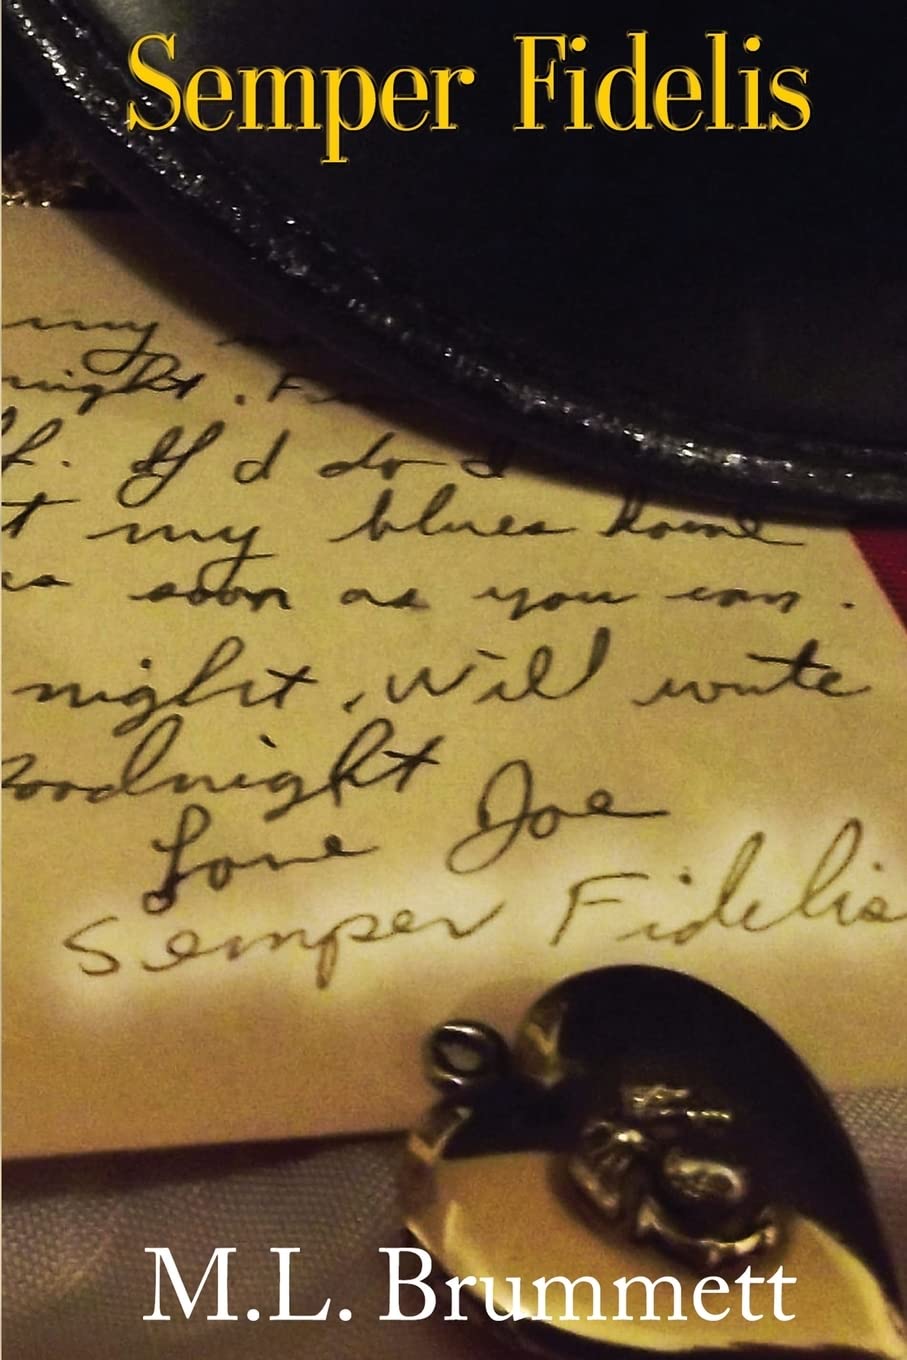 Semper Fidelis
my
night.
If I do I
my blues home
soon as you can.
night, Will write
Goodnight
Love Joe
Semper Fidelis
M.L. Brummett